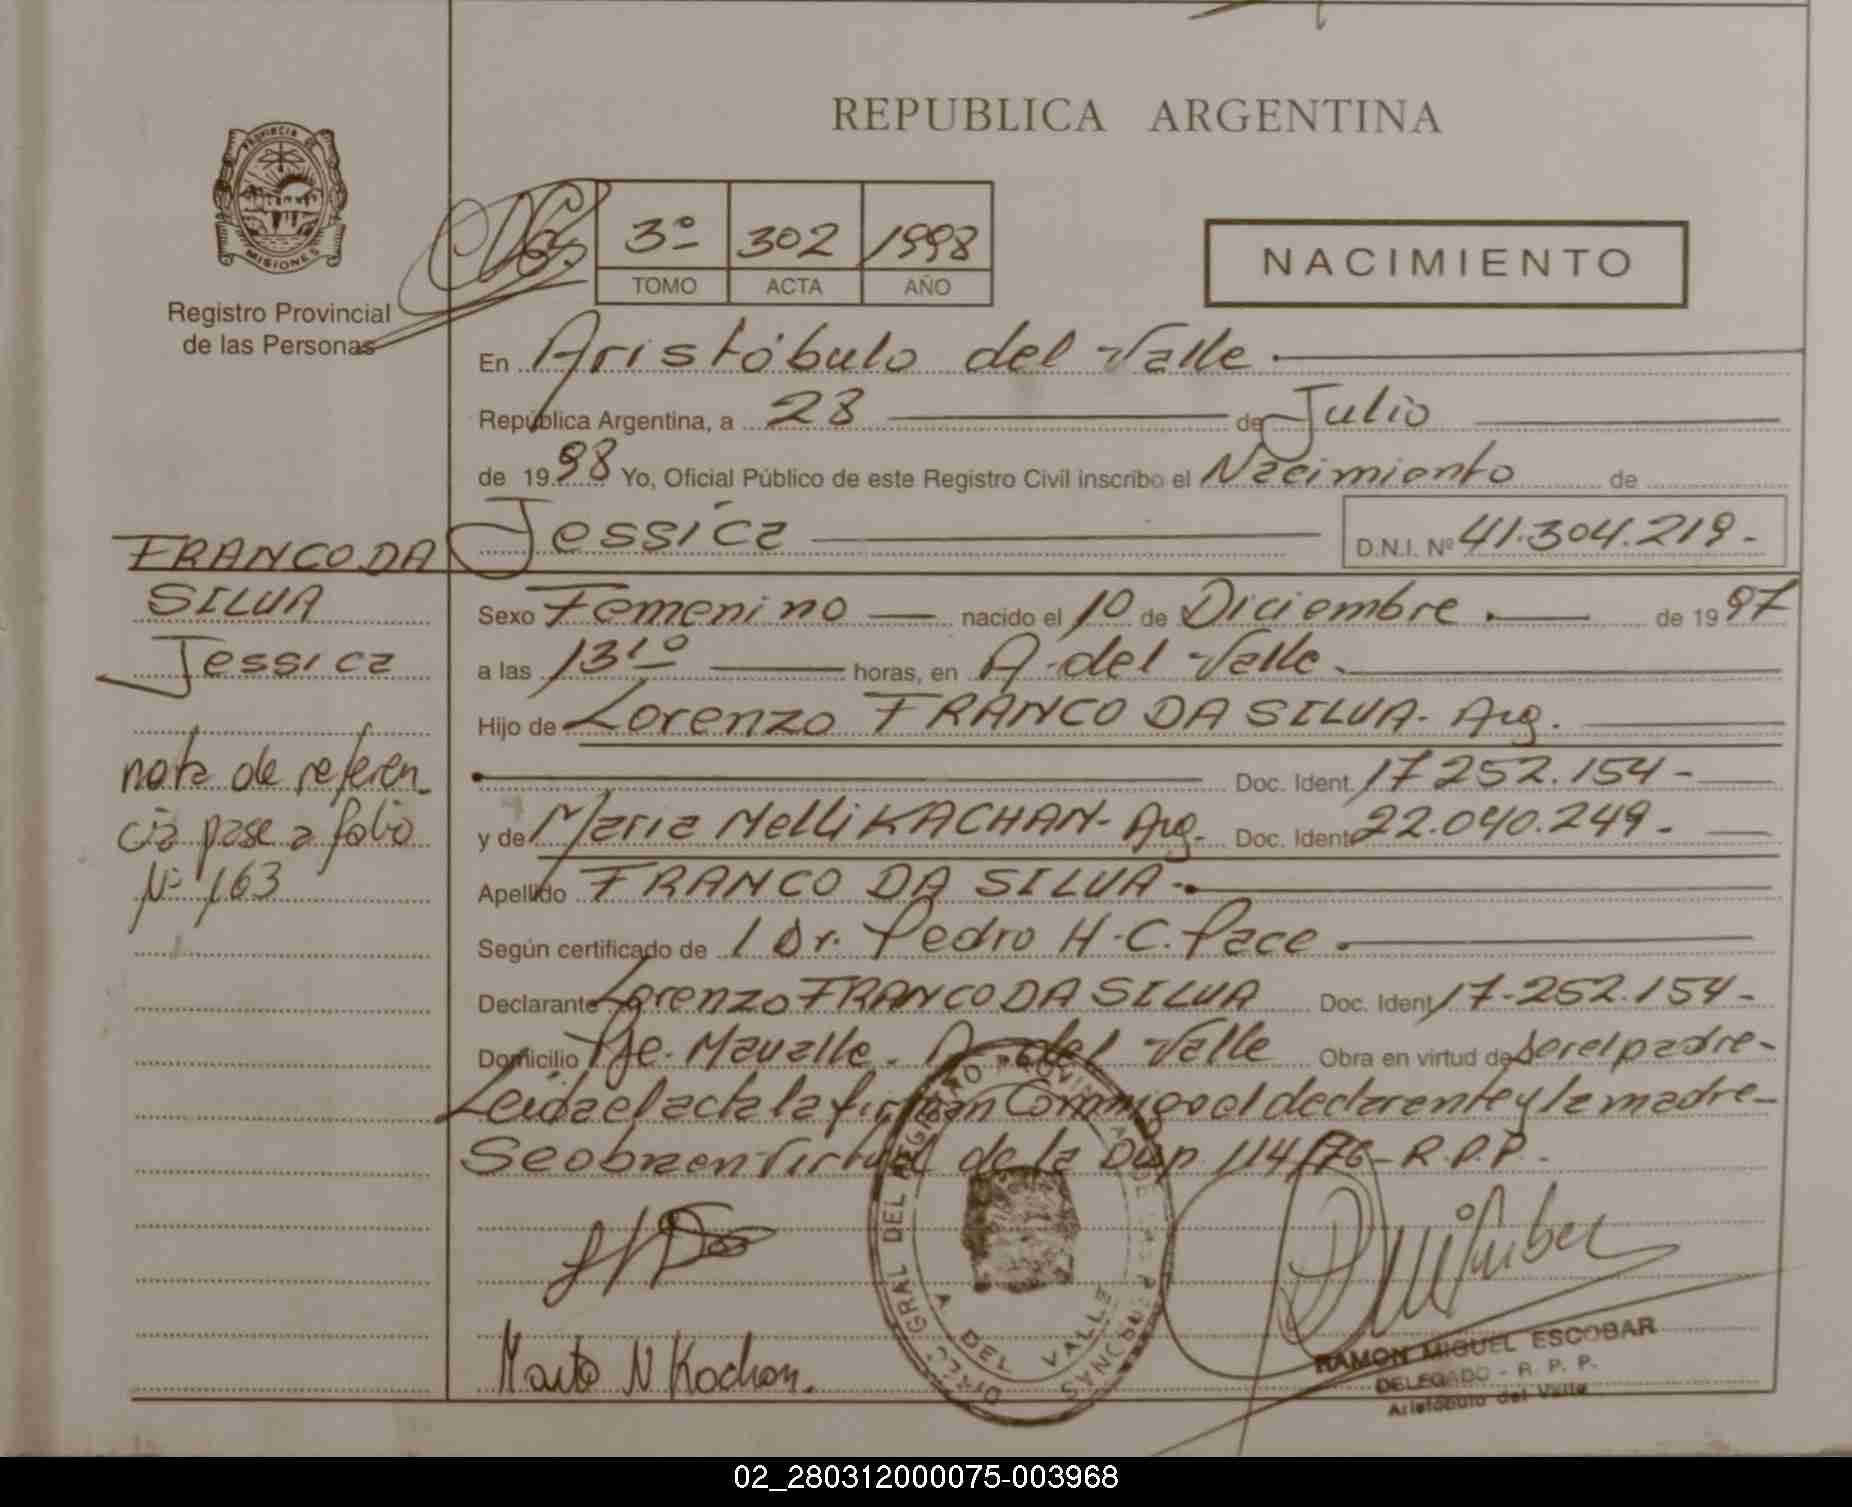 REPUBLICA ARGENTINA
PROVINCIA DE
MISIONES
Registro Provincial
de las Personas
3º 302 1998
TOMO ACTA AÑO
NACIMIENTO
En Aristóbulo del Valle
República Argentina, a 28 de Julio
de 1998 Yo, Oficial Público de este Registro Civil inscribo el Nacimiento de
Jessica D.N.I. Nº 41.304.219.-
FRANCO DA
SILVA
Jessica
nota de referen_
cia pase a folio
Nº 163
Sexo Femenino nacido el 10 de Diciembre de 1997
a las 13 1º horas, en A. del Valle.
Hijo de Lorenzo FRANCO DA SILVA. Arg.
Doc. Ident. 17 252.154-
y de Maria Nelli KACHAN- Arg. Doc. Ident. 22.040.249.
Apellido FRANCO DA SILVA.
Según certificado de 1 Dr. Pedro H.C. Pace.
Declarante Lorenzo FRANCO DA SILVA Doc. Ident. 17.252.154-
Domicilio Pje. Mavalle. A. del Valle Obra en virtud de ser el padre-
Leida el acta la firman Conmigo el declarente y la madre-
Se obra en virtud de la Disp. 114/76- R.P.P.
DIREC. GRAL DEL REGISTRO PROVINCIAL DE LAS PERSONAS
A DEL VALLE
N Kachan.
RAMON MIGUEL ESCOBAR
DELEGADO - R. P. P.
Aristóbulo del Valle
02_280312000075-003968